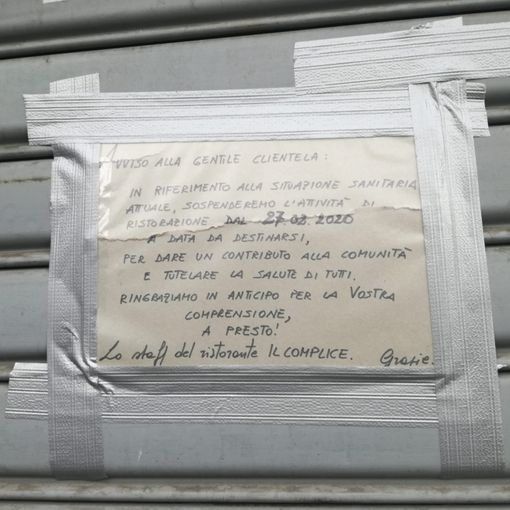 AVVISO ALLA GENTILE CLIENTELA:
IN RIFERIMENTO ALLA SITUAZIONE SANITARIA
ATTUALE, SOSPENDEREMO L'ATTIVITÀ DI
RISTORAZIONE DAL 27.02.2020
A DATA DA DESTINARSI,
PER DARE UN CONTRIBUTO ALLA COMUNITÀ
E TUTELARE LA SALUTE DI TUTTI.
RINGRAZIAMO IN ANTICIPO PER LA VOSTRA
COMPRENSIONE,
A PRESTO!
Lo staff del ristorante IL COMPLICE. Grazie.